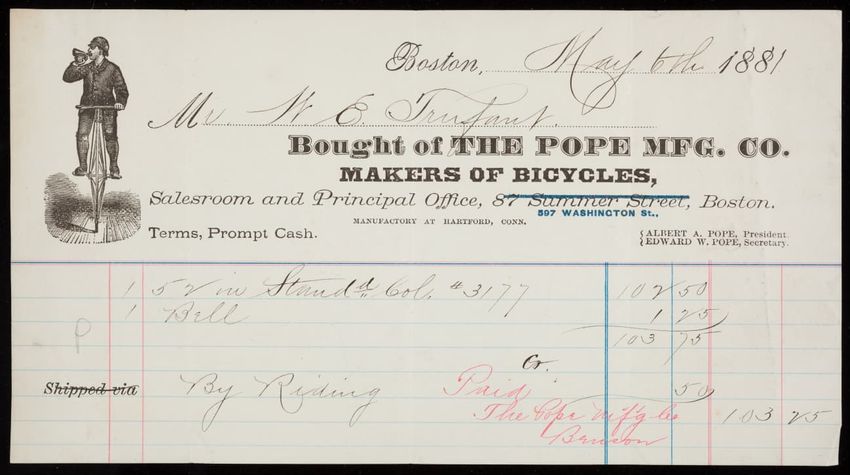 Boston, May 6th 1881
Mr. W. E. Trufant.
Bought of THE POPE MFG. CO.
MAKERS OF BICYCLES,
Salesroom and Principal Office, 87 Summer Street, Boston.
597 WASHINGTON St.,
MANUFACTORY AT HARTFORD, CONN.
Terms, Prompt Cash.
ALBERT A. POPE, President.
EDWARD W. POPE, Secretary.
1 52 in Standd Col. #3177 102 50
1 Bell 1 25
P 103 75
Cr.
Shipped via By Riding 50
Paid 103 25
The Pope M'f'g Co
Benson